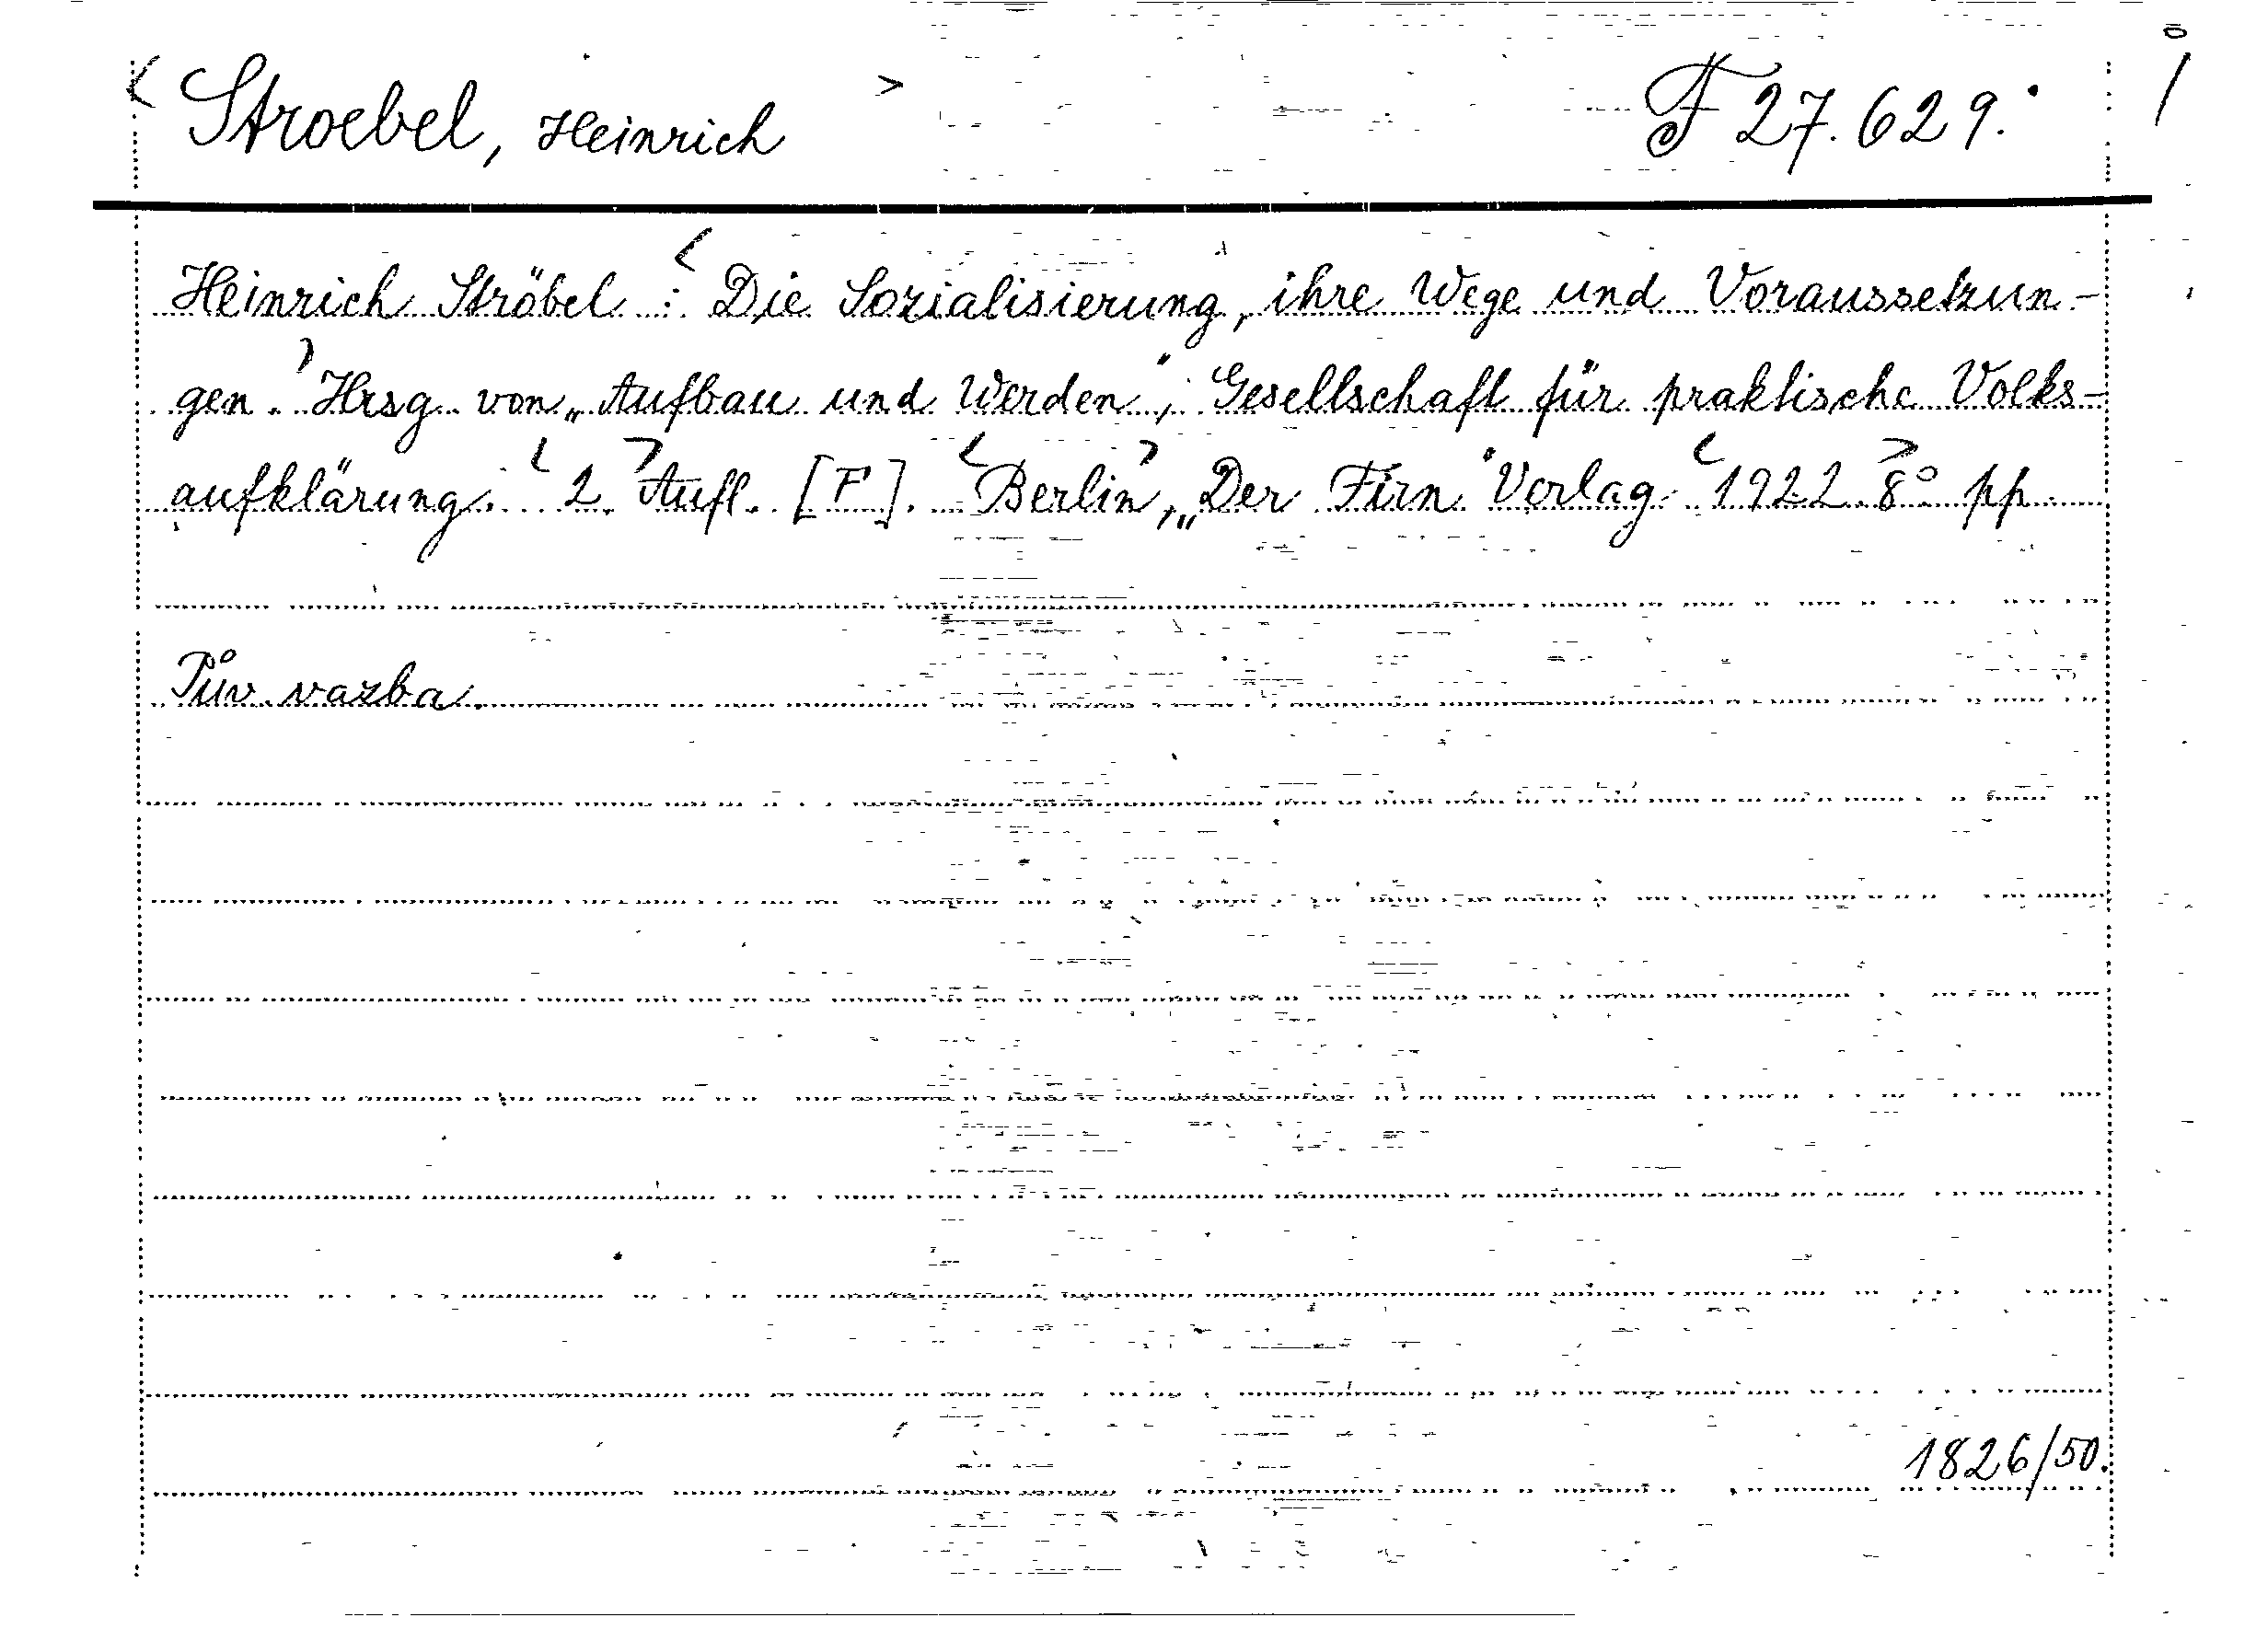 < Stroebel, Heinrich > F 27.629.
Heinrich Ströbel : < Die Sozialisierung, ihre Wege und Voraussetzun-
gen. > Hrsg. von „Aufbau und Werden", Gesellschaft für praktische Volks-
aufklärung. < 2. > Aufl. [F]. < Berlin >, „Der Firn" Verlag < 1922 > 8° pp
Ův. vazba.
1826/50.